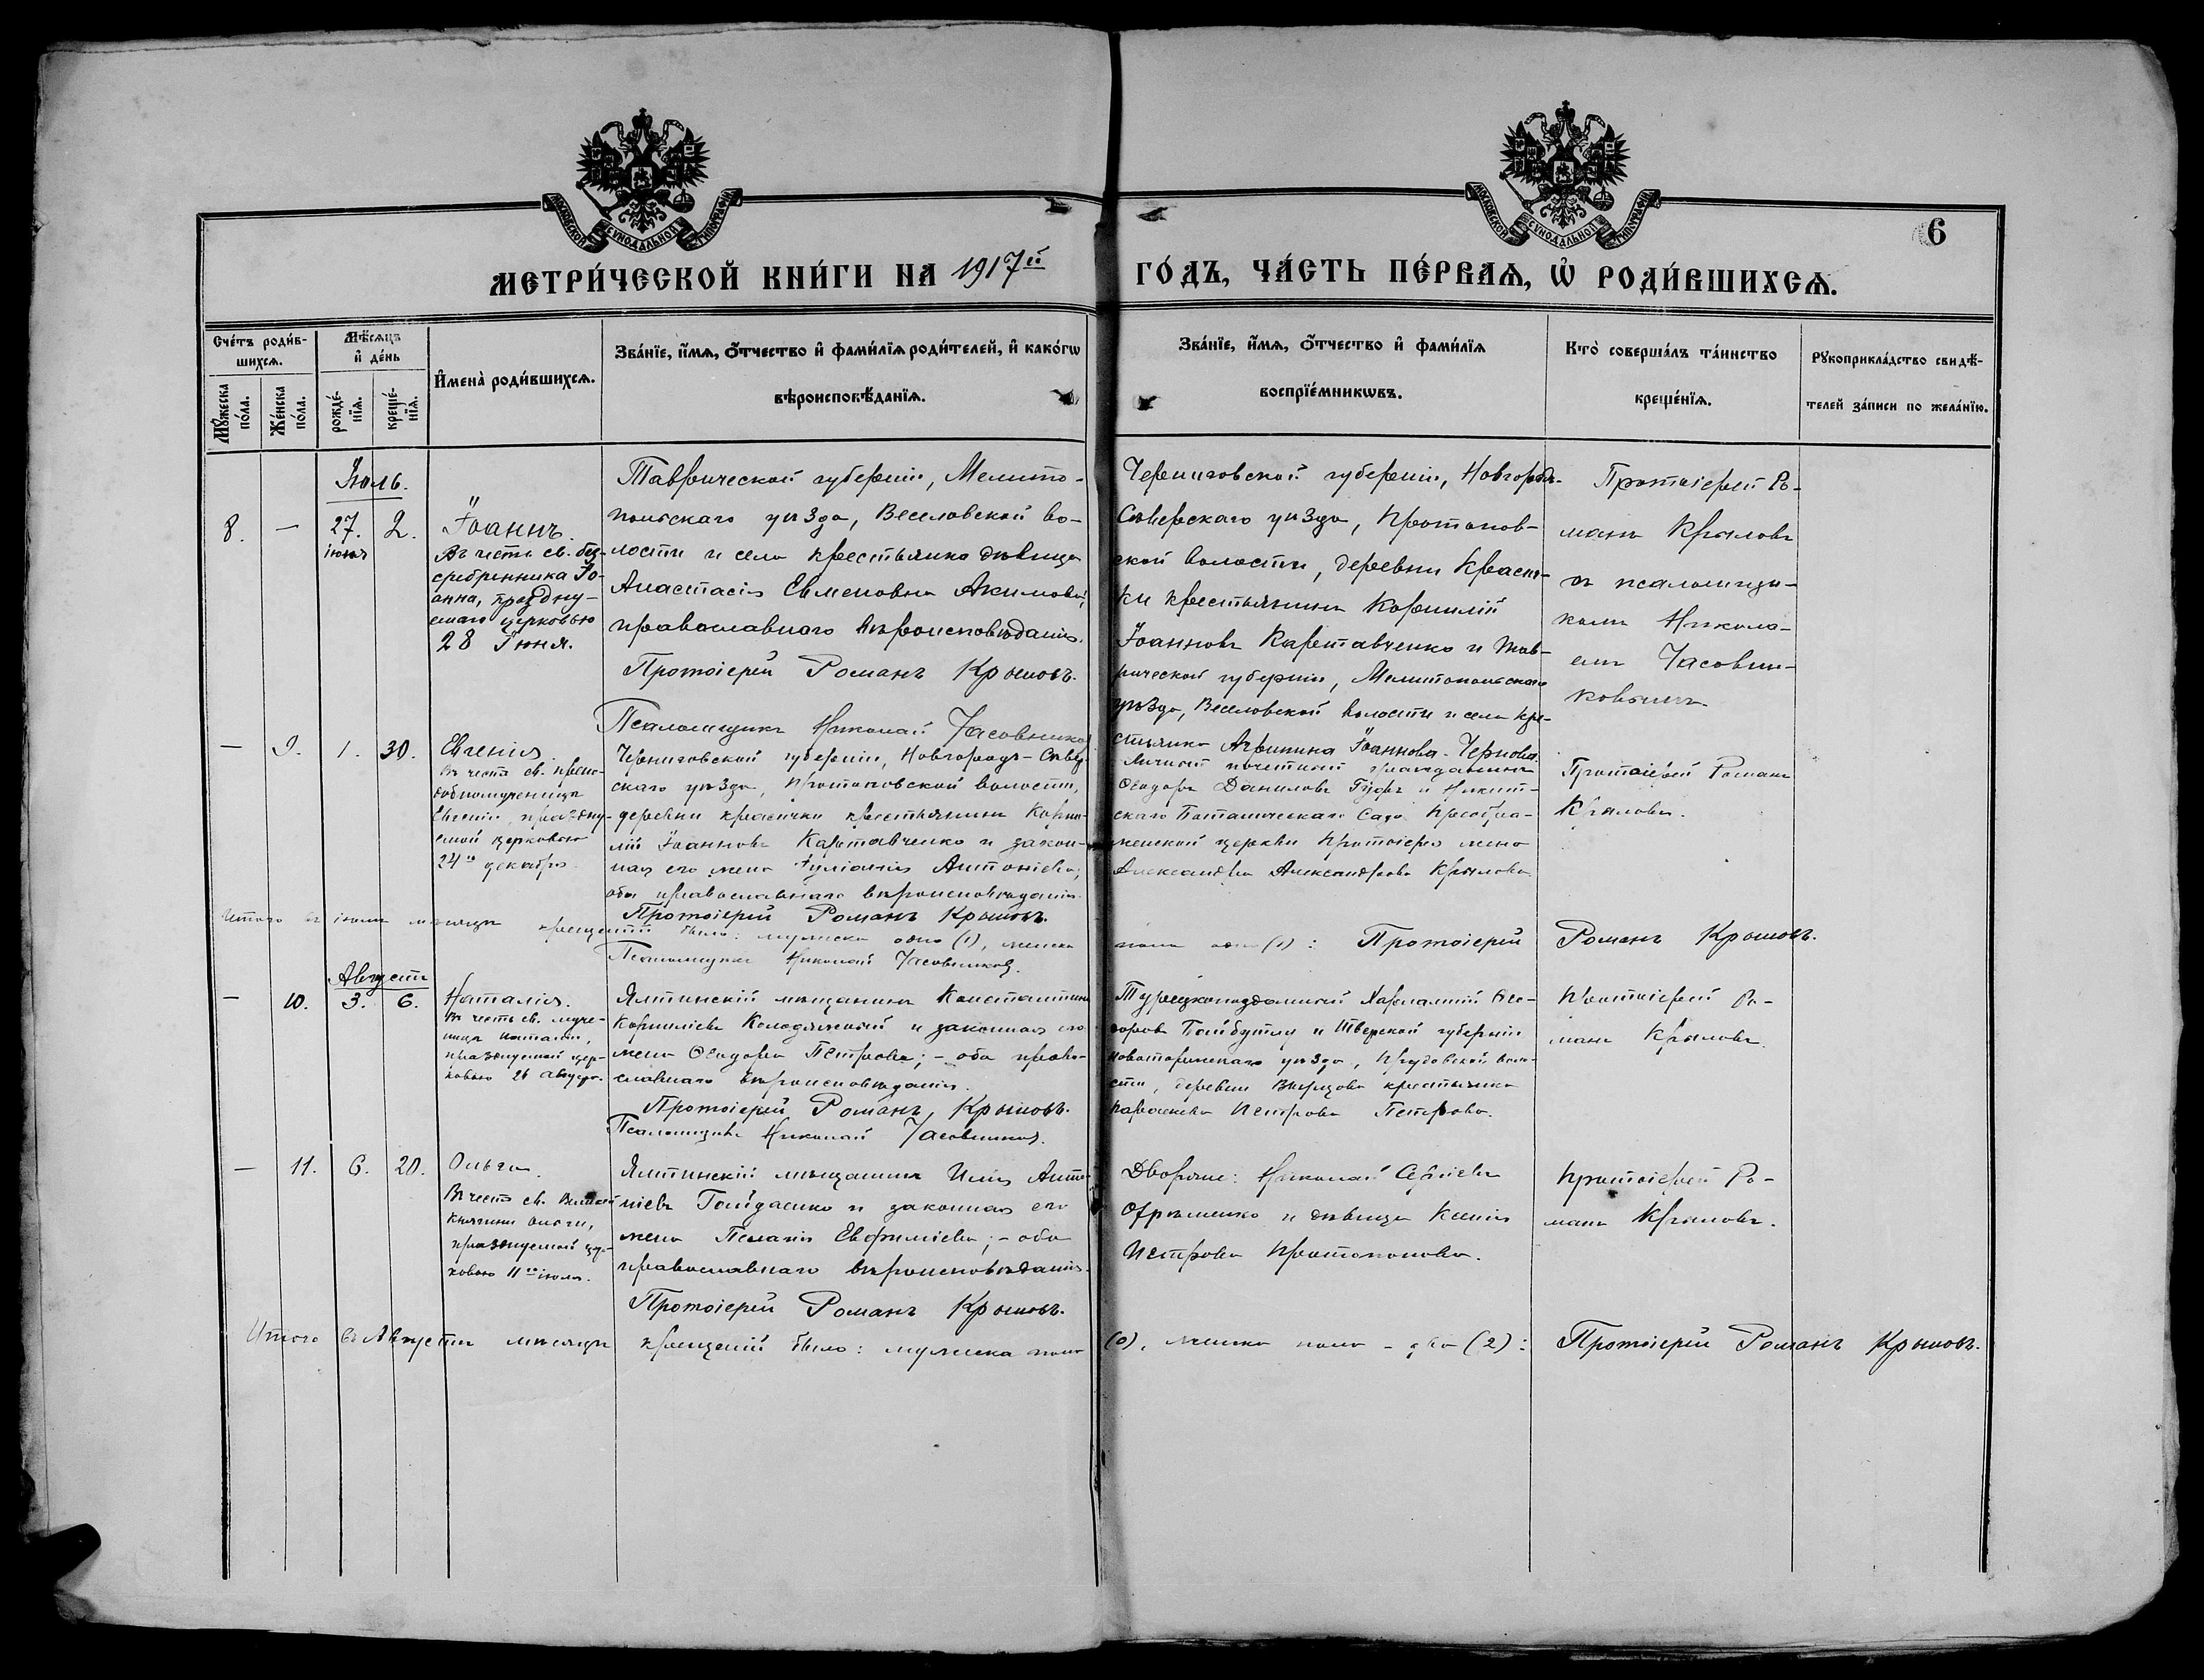 МОСКОВСКОЙ СУНОДАЛЬНОЙ ТИПОГРАФІИ
МОСКОВСКОЙ СУНОДАЛЬНОЙ ТИПОГРАФІИ
6
МЕТРИ́ЧЕСКОЙ КНИ́ГИ НА 1917й
ГО́ДЪ, ЧА́СТЬ ПЕ́РВАѦ, Ѡ҆ РОДИ́ВШИХСѦ.
Сче́тъ роди́в-
шихсѧ.
Мꙋ́жеска по́ла.
Же́нска по́ла.
Мѣ́сѧцъ
и҆ де́нь
рожде́-нїѧ.
креще́-нїѧ.
И҆мена̀ роди́вшихсѧ.
Зва́нїе, и҆́мѧ, ѻ҆́тчество и҆ фами́лїѧ роди́телей, и҆ како́гѡ
вѣроисповѣ́данїѧ.
Зва́нїе, и҆́мѧ, ѻ҆́тчество и҆ фами́лїѧ
воспрїе́мникѡвъ.
Кто̀ соверша́лъ та́инство
креще́нїѧ.
Рꙋкоприкла́дство свидѣ́-
телей за́писи по жела́нїю.
Іюль.
8. — 27. 2.
іюня
Іоаннъ.
Въ честь св. без-
сребренника Іо-
анна, праздну-
емаго церковью
28 Іюня.
Таврической губерніи, Мелито-
польскаго уѣзда, Веселовской во-
лости и села крестьянка дѣвица
Анастасія Евменовна Акимова,
православнаго вѣроисповѣданія.
Протоіерей Романъ Крыловъ.
Псаломщикъ Николай Часовников
Черниговской губерніи, Новгородъ-
Сѣверскаго уѣзда, Протопопов-
ской волости, деревни Красич-
ки крестьянинъ Корнилій
Іоанновъ Картавченко и Тав-
рической губерніи, Мелитопольскаго
уѣзда, Веселовской волости и села кре-
стьянка Агрипина Іоаннова Чернова.
Протоіерей Ро-
манъ Крыловъ
съ псаломщи-
комъ Никола-
емъ Часовни-
ковымъ.
— 9. 1. 30.
Евгенія.
Въ честь св. препо-
добномученицы
Евгеніи, праздну-
емой церковью
24го декабря.
Черниговской губерніи, Новгородъ-Сѣвер-
скаго уѣзда, Протопоповской волости,
деревни Красички крестьянинъ Корни-
лій Іоанновъ Картавченко и закон-
ная его жена Іуліанія Антоніева;
оба православнаго вѣроисповѣданія.
Протоіерей Романъ Крыловъ.
Псаломщикъ Николай Часовников.
Личный почетный гражданинъ
Ѳеодоръ Даниловъ и Никит-
скаго Ботаническаго Сада Преобра-
женской церкви Протоіерея жена
Александра Александрова Крылова.
Протоіерей Романъ
Крыловъ.
Итого въ іюлѣ мѣсяцѣ крещеній было: мужска одно (1), женска
пола одно (1): Протоіерей Романъ Крыловъ.
Августъ
— 10. 3. 6.
Наталія.
Въ честь св. муче-
ницы Наталіи,
празднуемой цер-
ковью 26 августа.
Ялтинскій мѣщанинъ Константинъ
Корниліевъ Колодяжный и законная его
жена Ѳеодора Петрова; - оба право-
славнаго вѣроисповѣданія.
Протоіерей Романъ Крыловъ.
Псаломщикъ Николай Часовников.
Турецкоподданный Харлампій Ѳео-
доровъ и Тверской губерніи
Новоторжскаго уѣзда, Прудовской воло-
сти, деревни крестьянка
Параскева Петрова Петрова.
Протоіерей Ро-
манъ Крыловъ.
— 11. 6. 20.
Ольга.
Въ честь св. Великой
Княгини Ольги,
празднуемой цер-
ковью 11го іюля.
Ялтинскій мѣщанинъ Илія Анто-
ніевъ Гайдаенко и законная его
жена Пелагія Евфиміева; - оба
православнаго вѣроисповѣданія.
Протоіерей Романъ Крыловъ.
Дворяне: Николай Сергіевъ
и дѣвица Ксенія
Петрова Протопопова.
Протоіерей Ро-
манъ Крыловъ.
Итого въ Августѣ мѣсяцѣ крещеній было: мужска пола
(0), женска пола - два (2): Протоіерей Романъ Крыловъ.